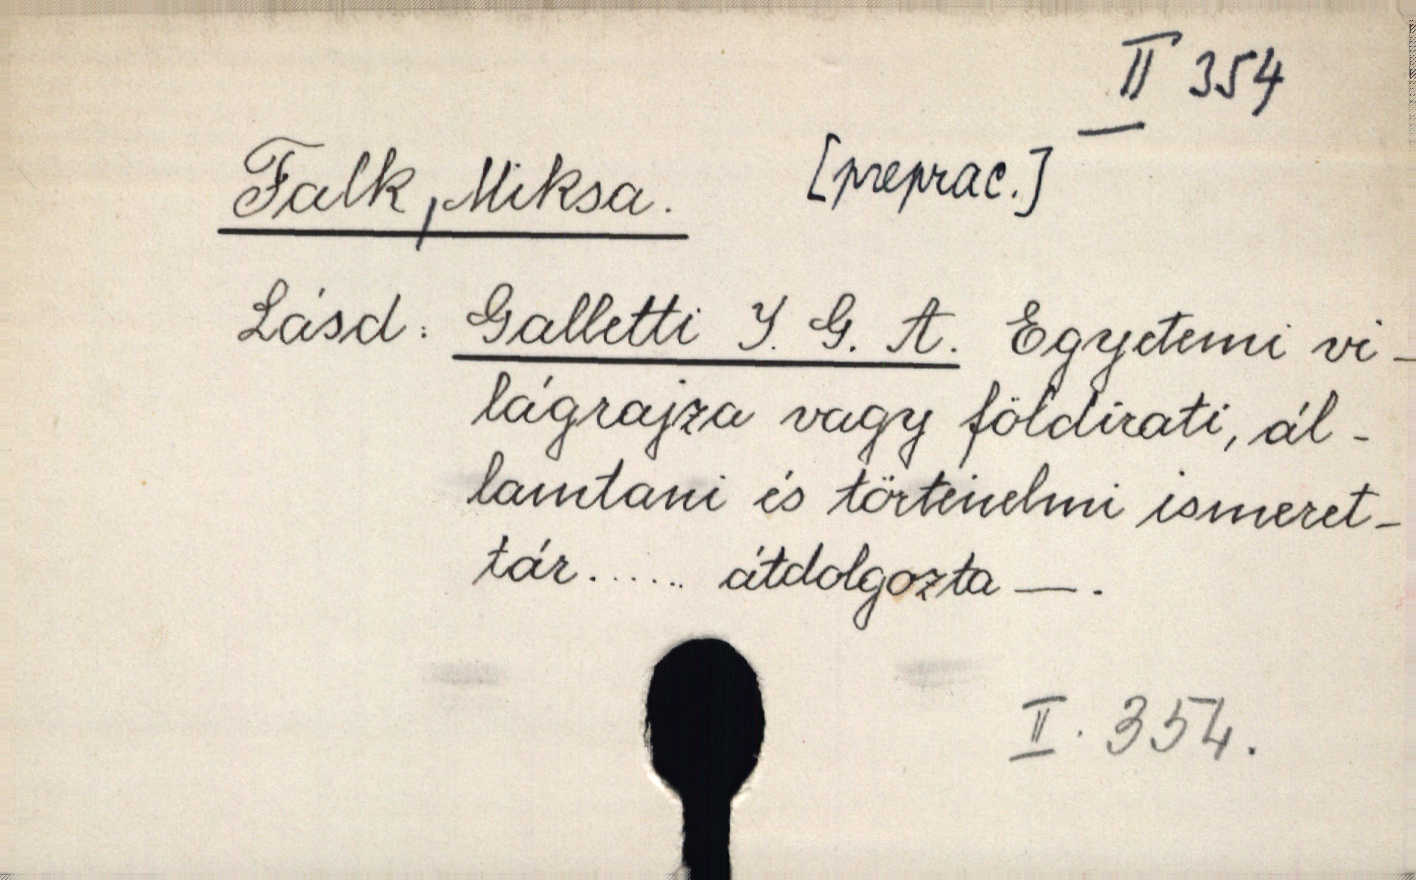 II 354
Falk, Miksa. [preprac.]
Lásd: Galletti J. G. A. Egyetemi vi-
lágrajza vagy földirati, ál-
lamtani és történelmi ismeret-
tár...... átdolgozta —.
II. 354.